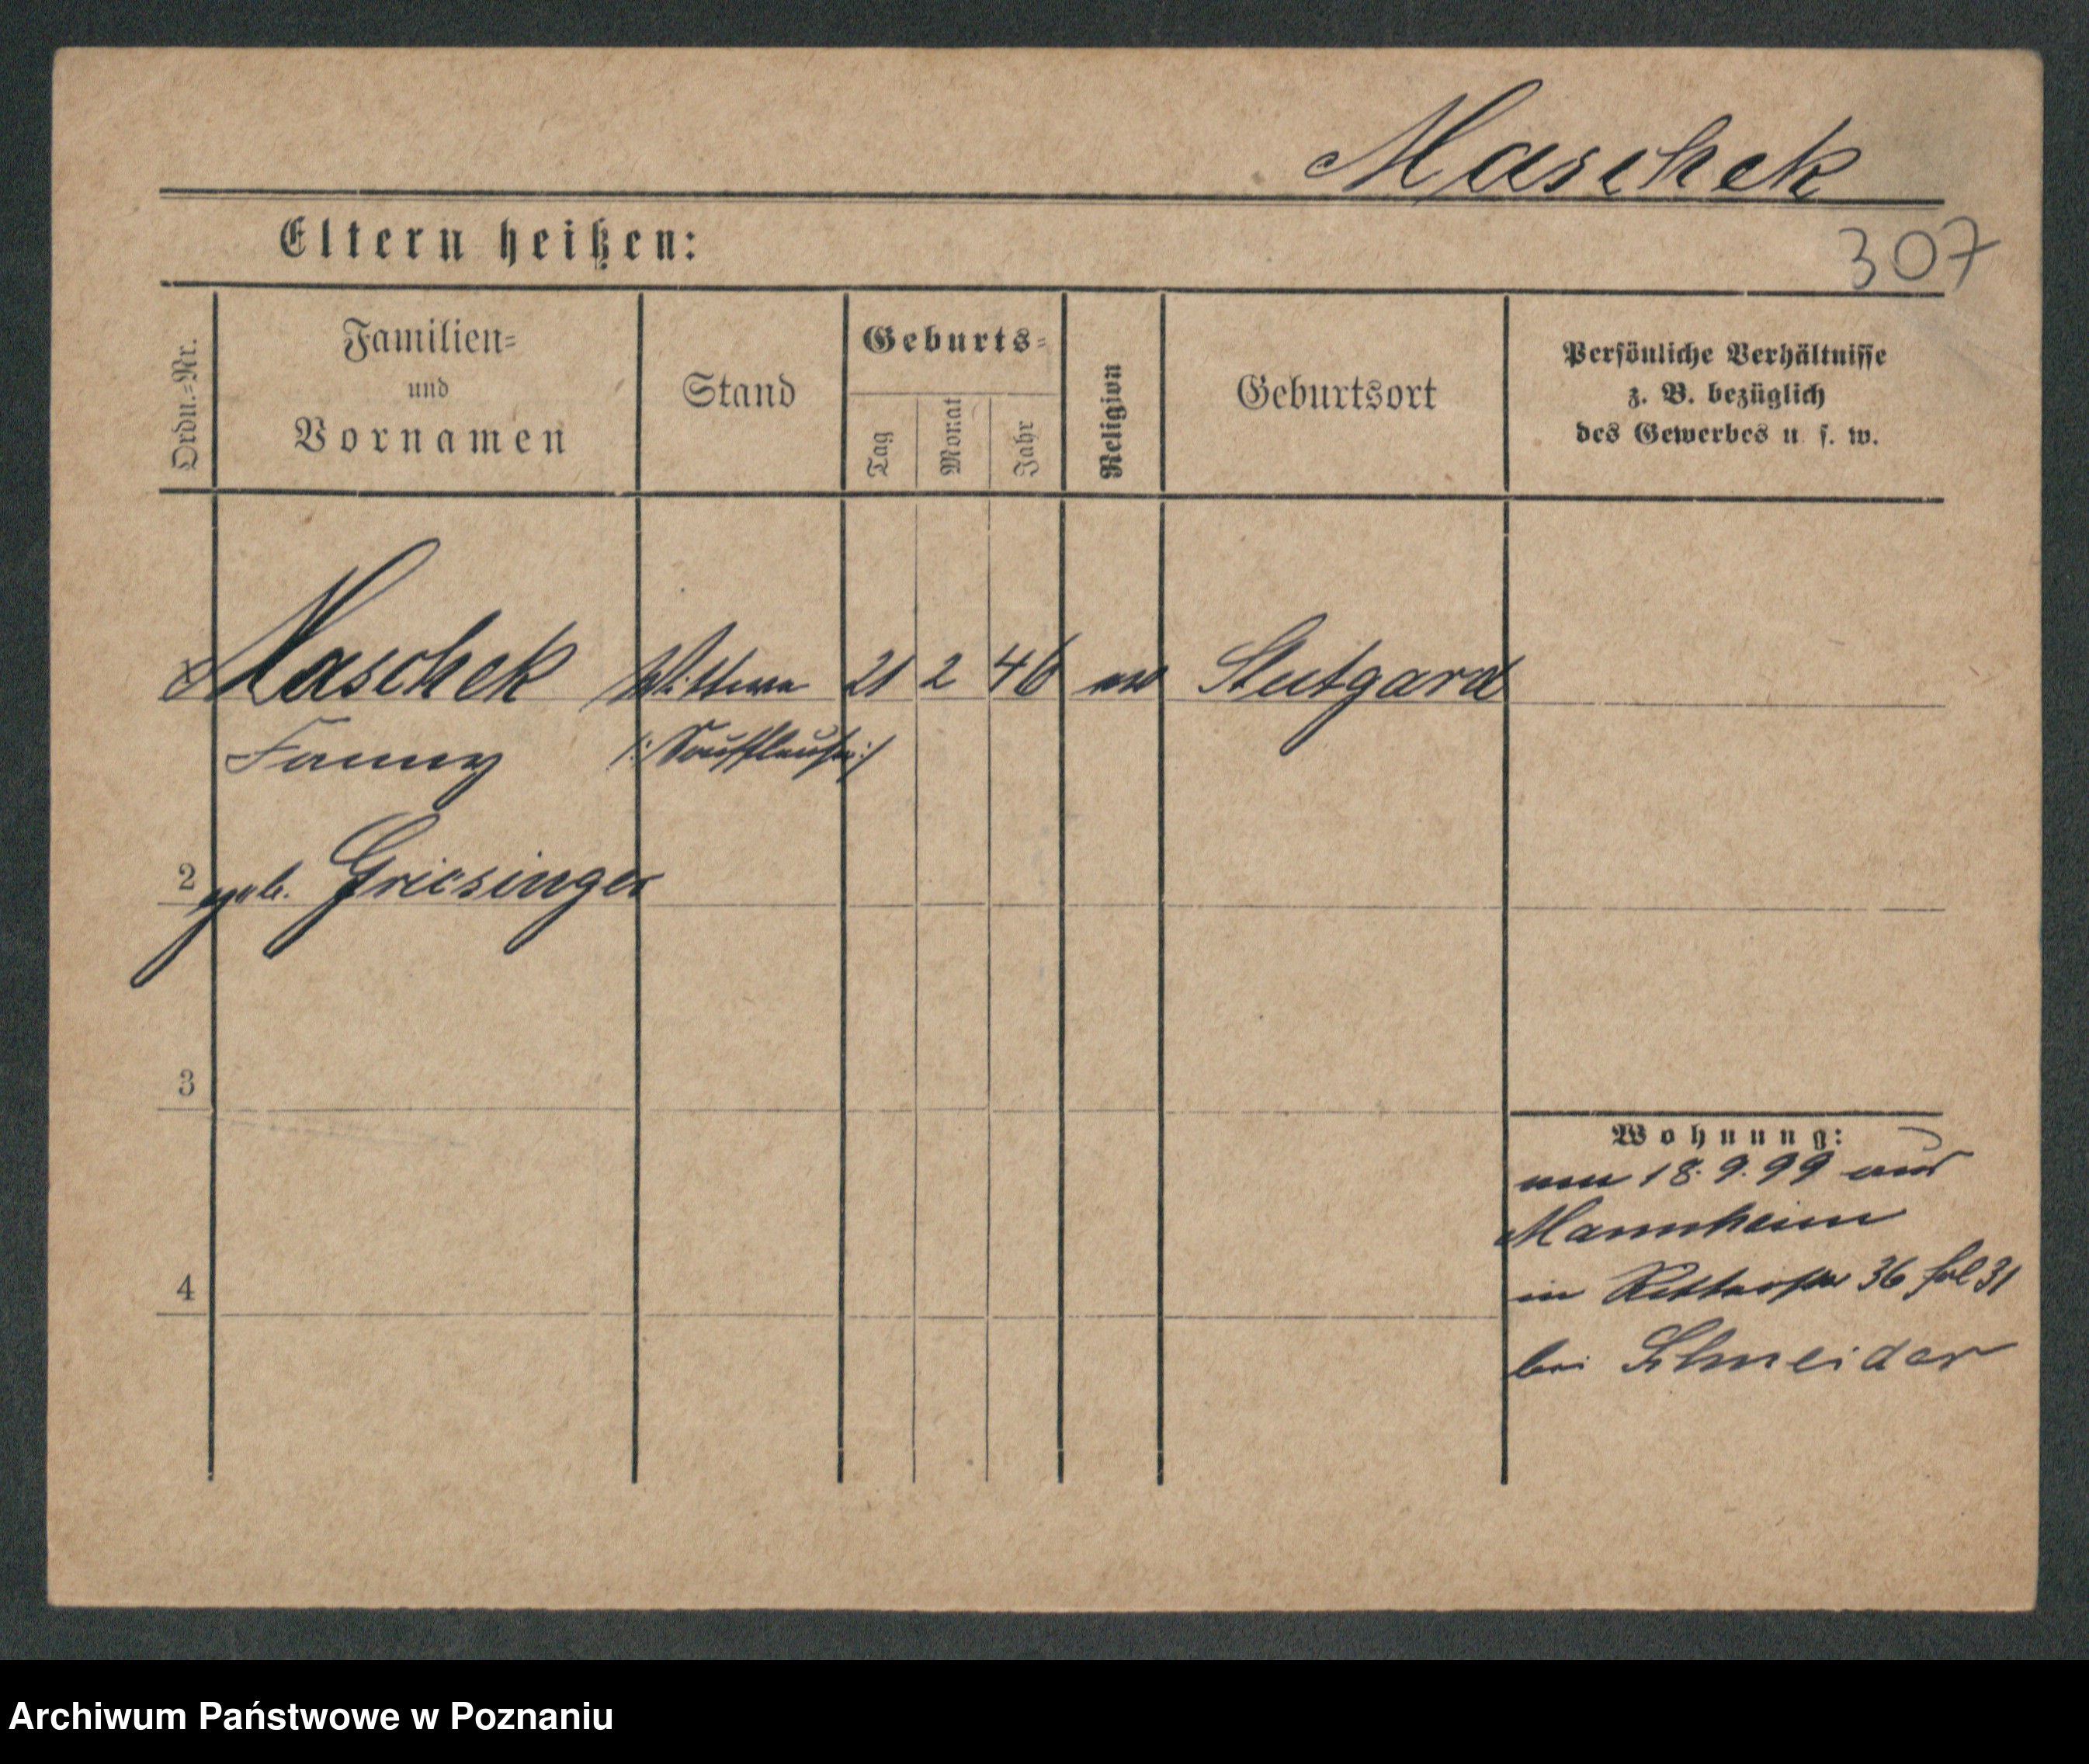 Maschek
307
Eltern heißen:
Ordn.-Nr.
Familien-
und
Vornamen
Stand
Geburts-
Tag
Monat
Jahr
Religion
Geburtsort
Persönliche Verhältnisse
z. B. bezüglich
des Gewerbes u. s. w.
Maschek Wittwe 21 2 46 ev Stutgard
Fanny /:Souffleuse:/
2 geb. Griesinger
3
Wohnung:
am 18.9.99 aus
Mannheim
4
in Ritterstr 36 fol 31
bei Schneider
Archiwum Państwowe w Poznaniu